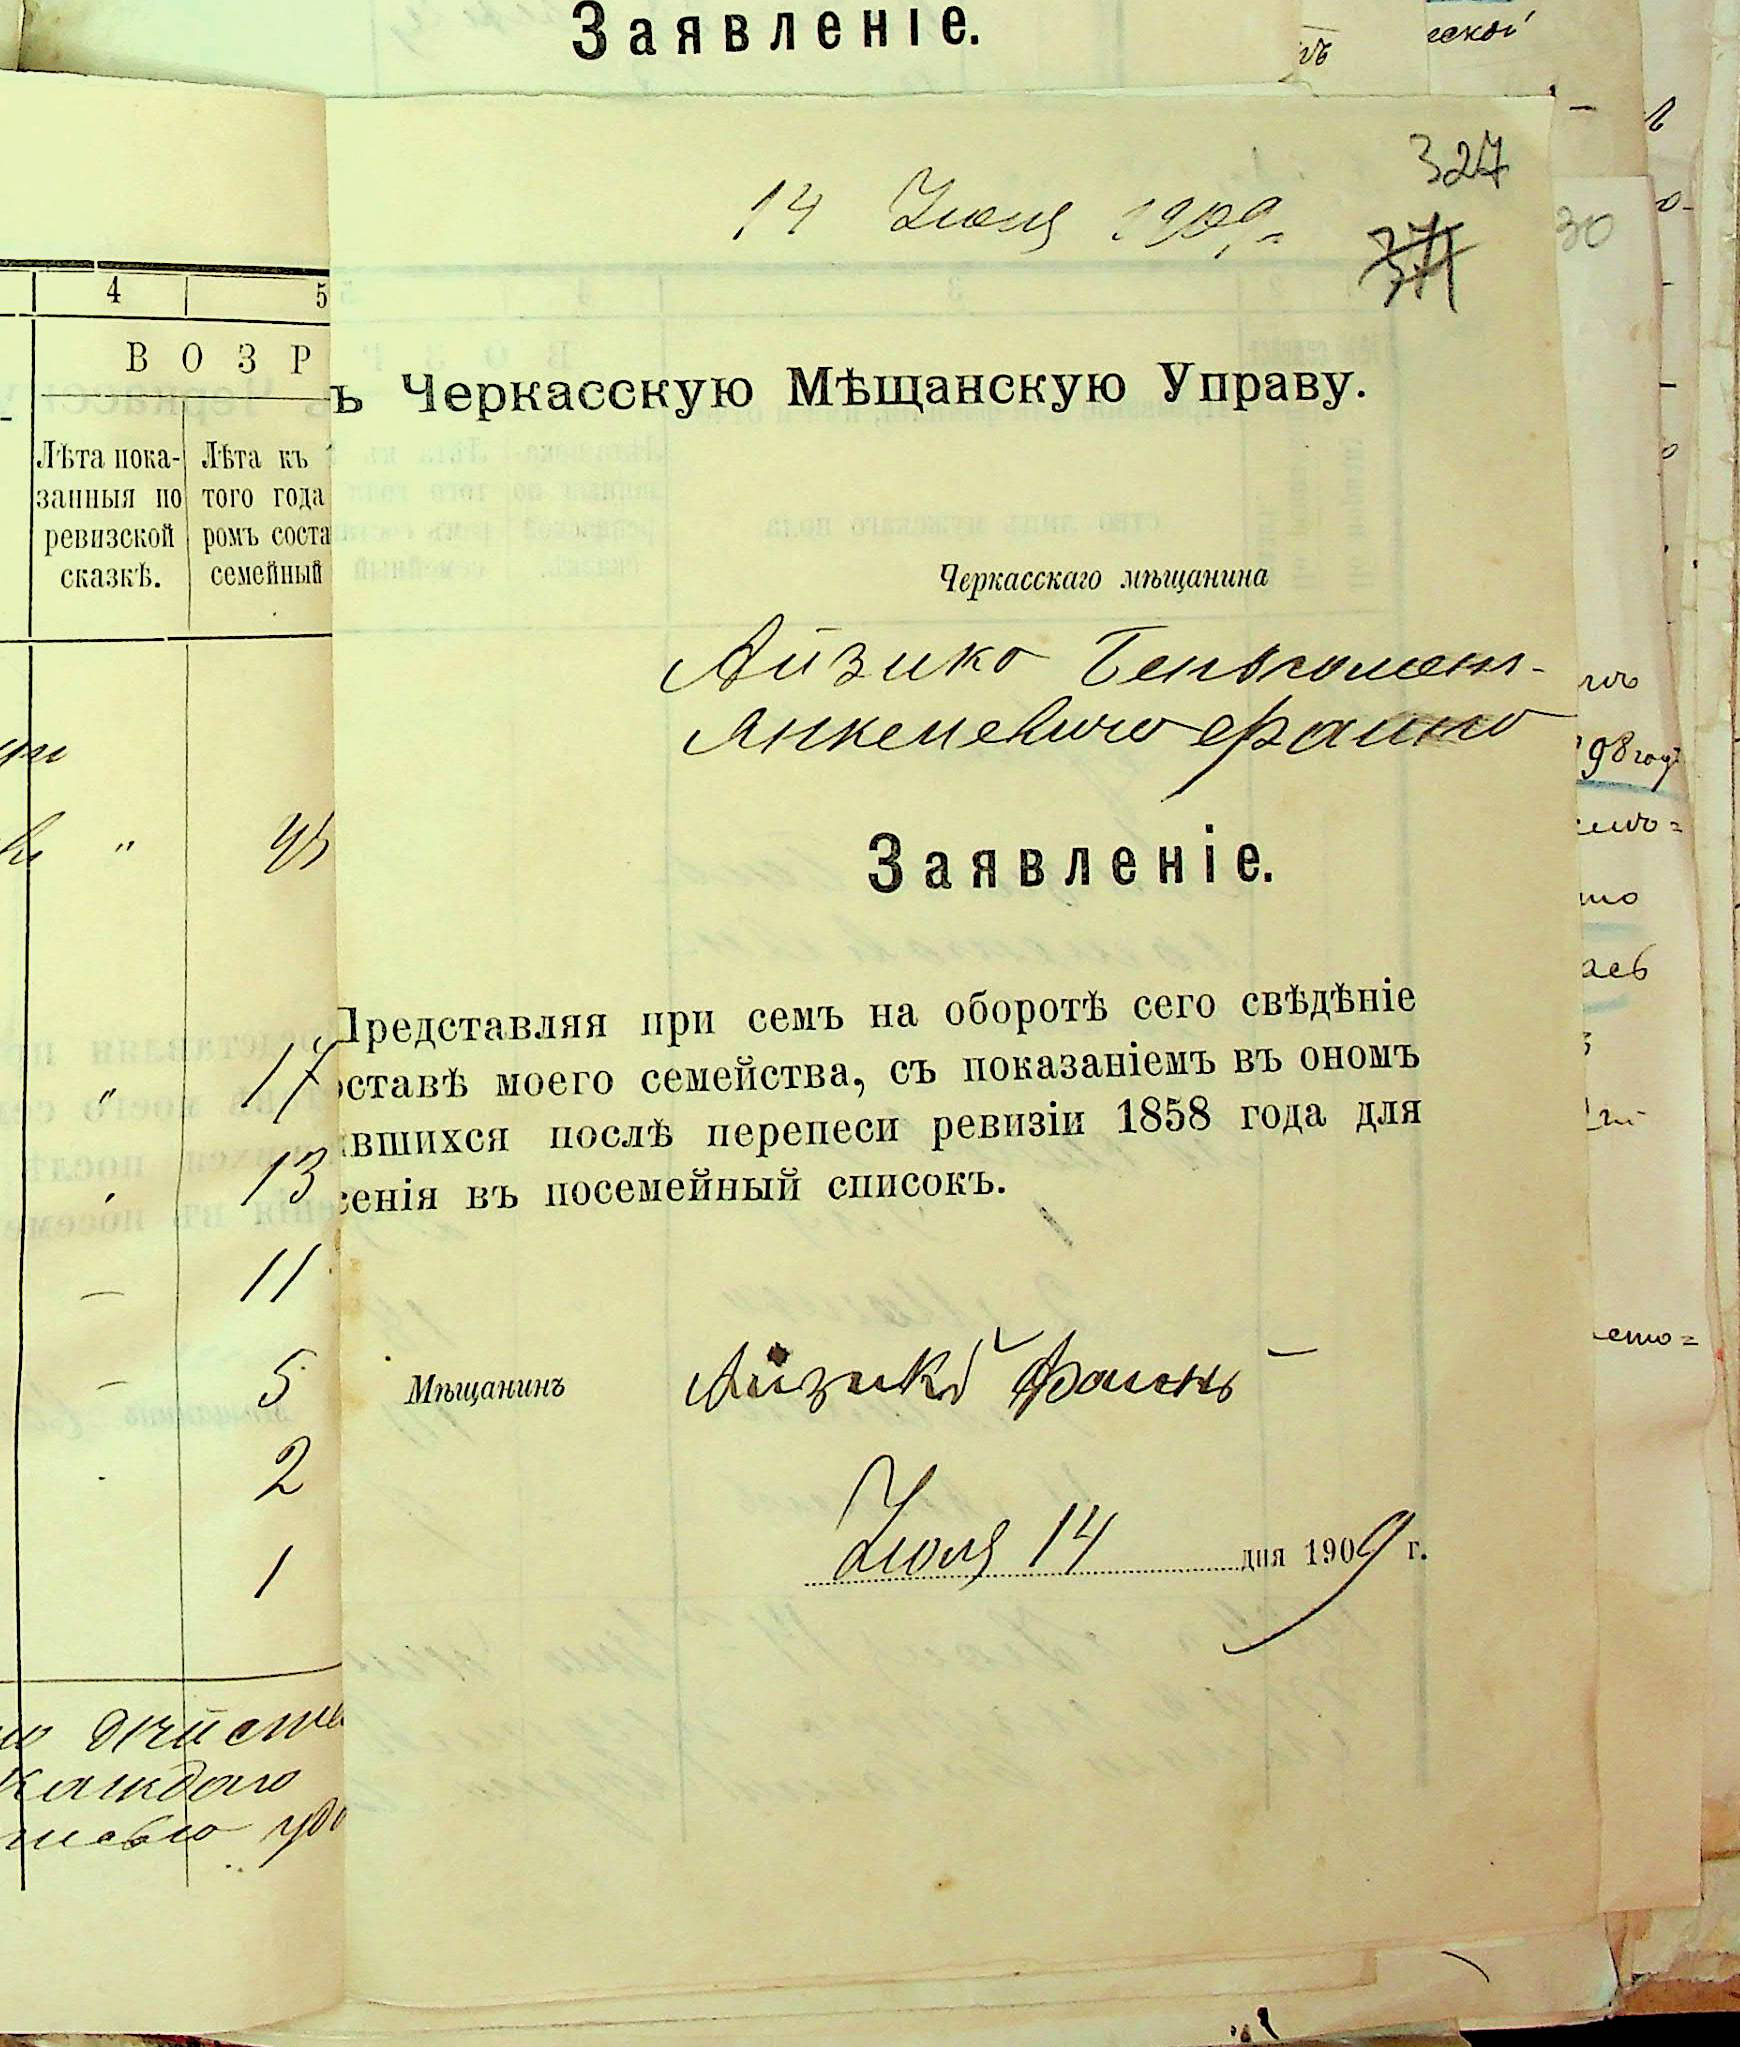 Заявленіе.
327
14 Июля 1909 г.
30
ъ Черкасскую Мѣщанскую Управу.
Черкасскаго мѣщанина
Айзика
Янкелевича Файна
Заявленіе.
Представляя при семъ на оборотѣ сего свѣдѣніе
оставѣ моего семейства, съ показаніемъ въ ономъ
вшихся послѣ перепеси ревизіи 1858 года для
сенія въ посемейный списокъ.
Мѣщанинъ Айзикъ Фаинъ
Июля 14 дня 1909 г.
4 5
ВОЗР
Лѣта пока- Лѣта къ
занныя по того года
ревизской ромъ соста
сказкѣ. семейный
" 45
" 17
13
11
5
2
1
каждаго